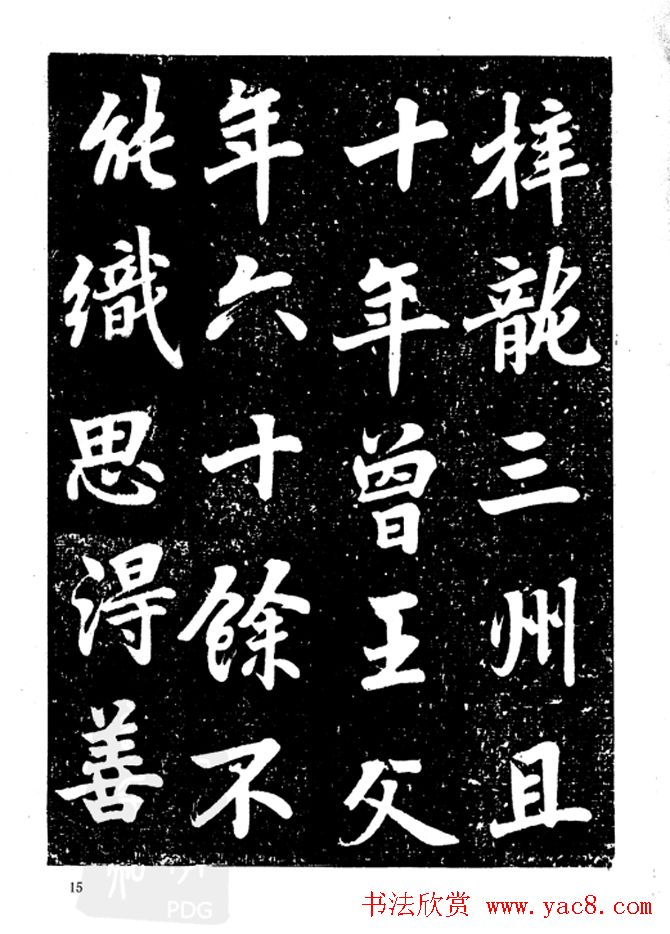 梓龍三州且
十年曾王父
年六十餘不
能織思得善
15
PDG
书法欣赏 www.yac8.com